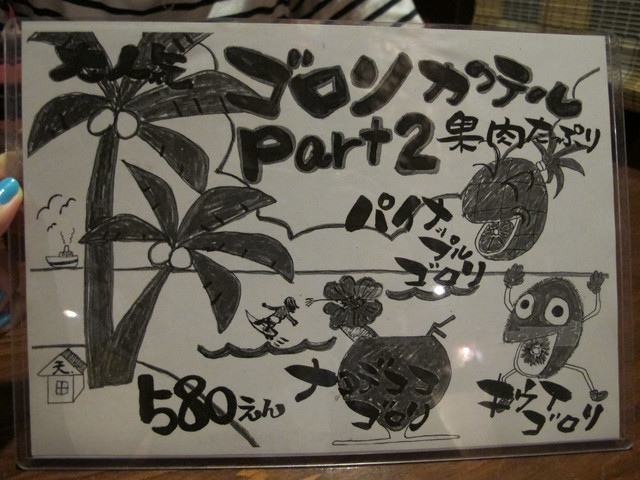 大人気
ゴロリカクテル
part2
果肉たっぷり
パイナップル
ゴロリ
ナタデココ
ゴロリ
キウイ
ゴロリ
天
580えん